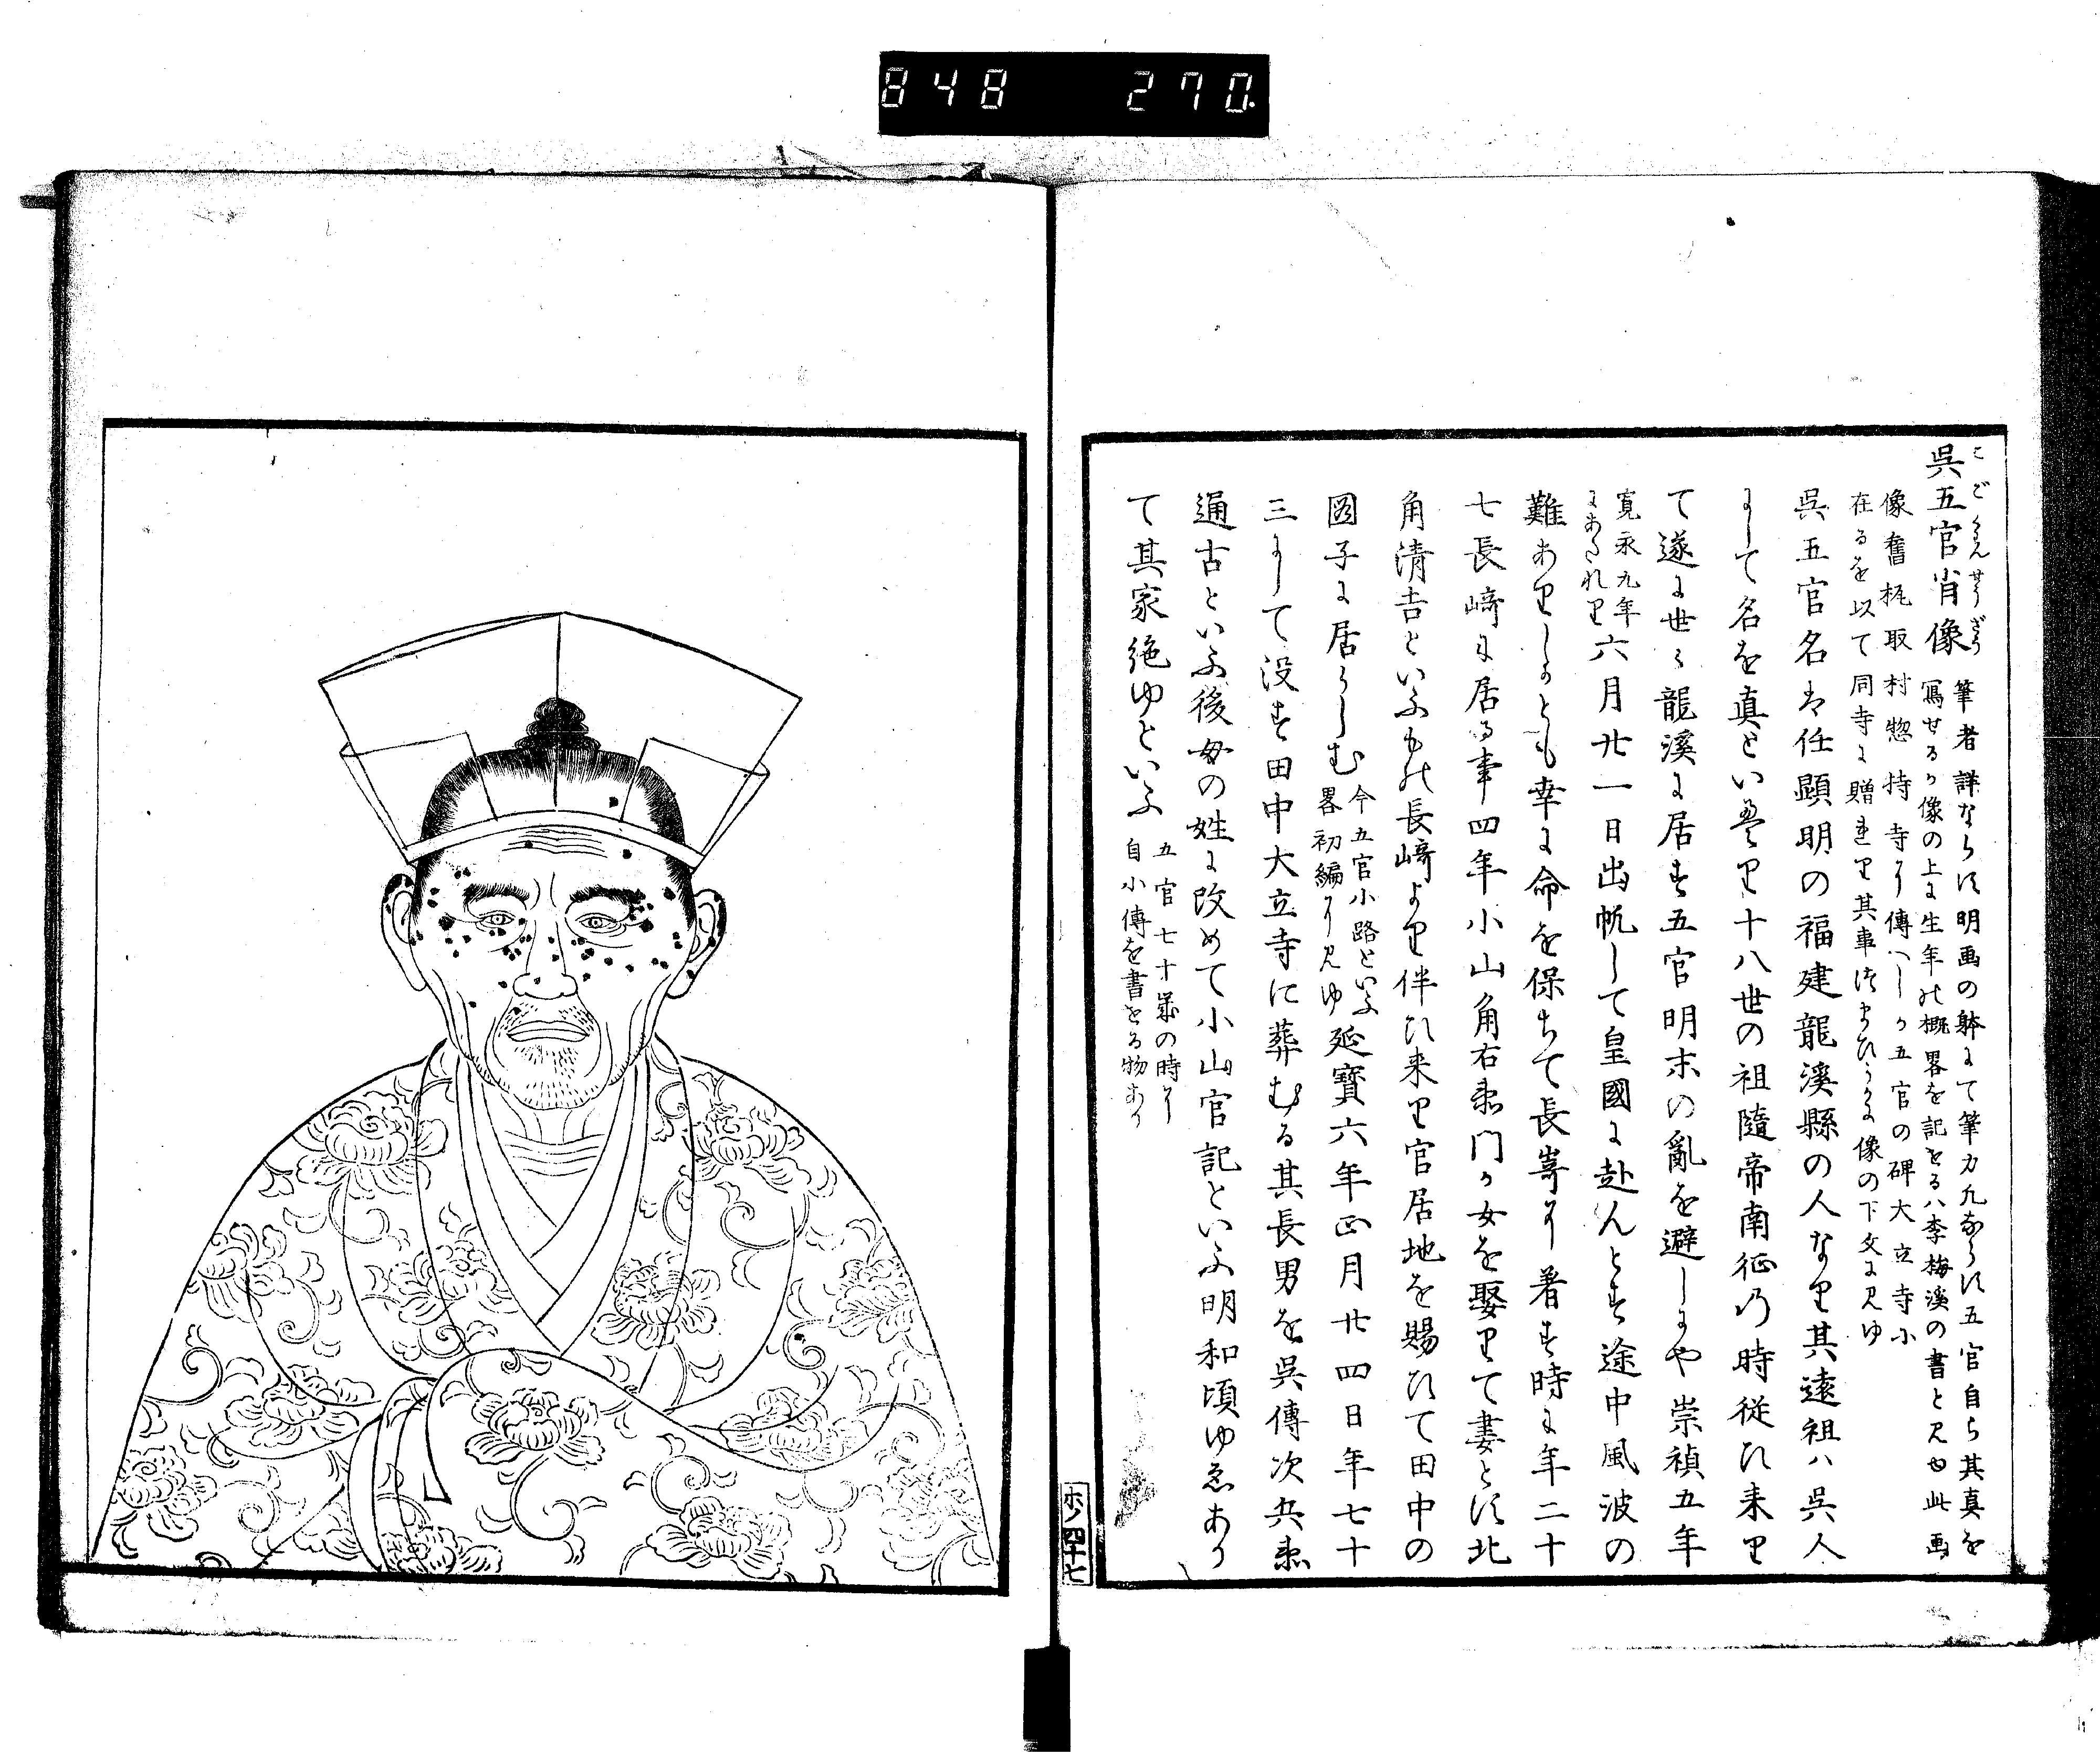 848 270
呉五官肖像
ごごくわんせうざう
筆者詳ならす明画の躰にて筆力凡ならす五官自ら其真を
寫せるか像の上に生年の概畧を記せるハ李梅溪の書と見ゆ此画
像舊枇取村惣持寺に傳へしか五官の碑大立寺小
在るを以て同寺に贈れり其事つまひらかに像の下文に見ゆ
呉五官名は任顕明の福建龍溪縣の人なり其遠祖ハ呉人
にして名を真といへり十八世の祖隨帝南征の時従ひ来り
て遂に世々龍溪に居す五官明末の亂を避しにや崇禎五年
寛永九年
にあたれり
六月廿一日出帆して皇國に赴んとす途中風波の
難ありしかとも幸に命を保ちて長嵜に着す時に年二十
七長﨑に居る事四年小山角右衛門か女を娶りて妻とす北
角清吉といふもの長﨑より伴ひ来り官居地を賜ひて田中の
圀子に居らしむ
今五官小路といふ
畧初編に見ゆ
延寶六年正月廿四日年七十
三にして没す田中大立寺に葬むる其長男を呉傳次兵衛
通古といふ後母の姓に改めて小山官記といふ明和頃ゆゑあり
て其家絶ゆといふ
五官七十歳の時に
自小傳を書せる物あり
ホノ四十七